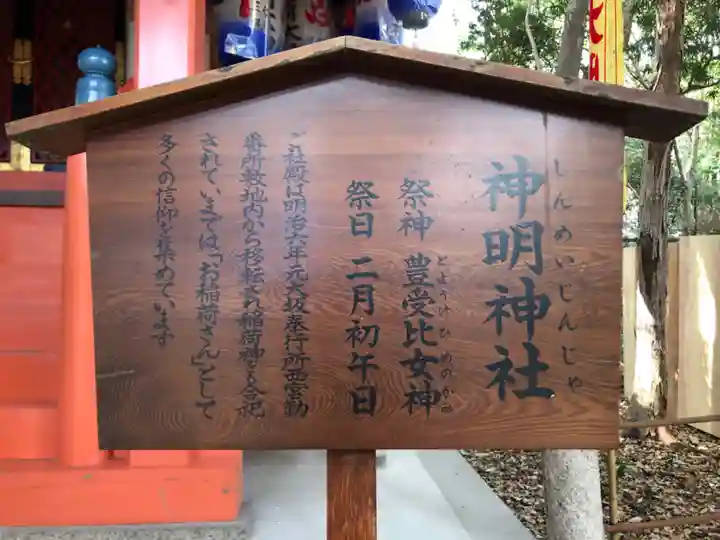 しんめいじんじゃ
神明神社
祭神 豊受比女神
とようけひめのかみ
祭日 二月初午日
ご社殿は明治六年元大坂奉行所西堂勤
番所敷地内から移転され稲荷神を合祀
されていまでは「お稲荷さん」として
多くの信仰を集めています